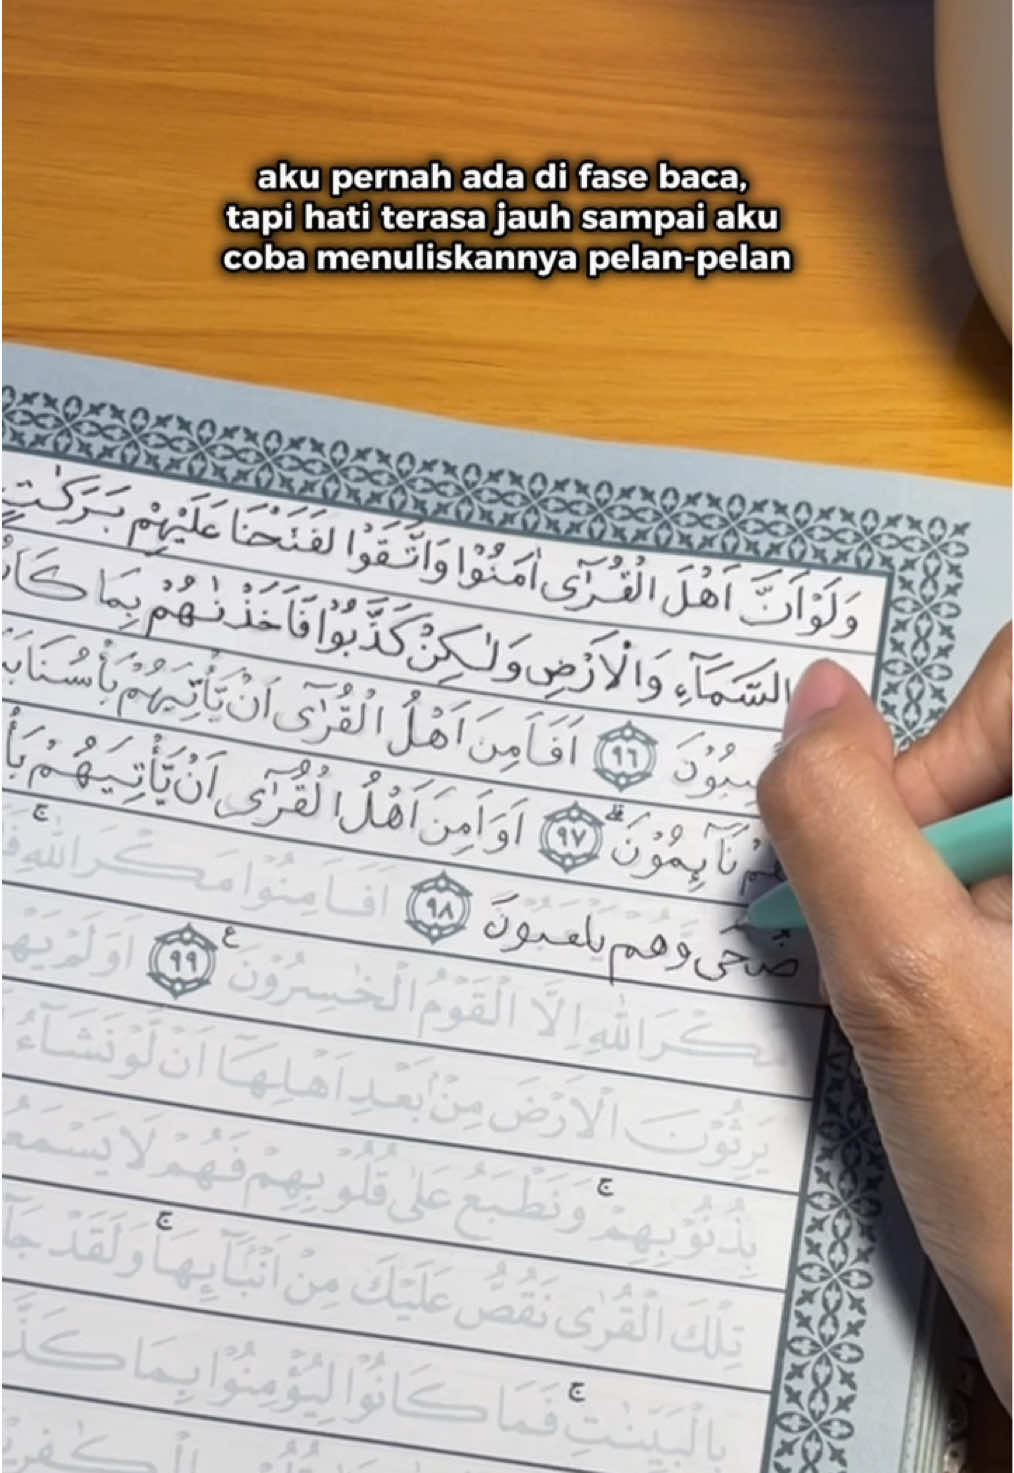 aku pernah ada di fase baca,
tapi hati terasa jauh sampai aku
coba menuliskannya pelan-pelan
وَلَوْ اَنَّ اَهْلَ الْقُرٰٓى اٰمَنُوْا وَاتَّقَوْا لَفَتَحْنَا عَلَيْهِمْ بَرَكٰتٍ
السَّمَاۤءِ وَالْاَرْضِ وَلٰكِنْ كَذَّبُوْا فَاَخَذْنٰهُمْ بِمَا
٩٦ اَفَاَمِنَ اَهْلُ الْقُرٰٓى اَنْ يَّأْتِيَهُمْ بَأْسُنَا
نَاۤىِٕمُوْنَ ۗ ٩٧ اَوَاَمِنَ اَهْلُ الْقُرٰٓى اَنْ يَّأْتِيَهُمْ
ضحى وهم يلعبون ٩٨ اَفَاَمِنُوْا مَكْرَ اللّٰهِ ۚ
اللّٰهِ اِلَّا الْقَوْمُ الْخٰسِرُوْنَ ࣖ ٩٩ اَوَلَمْ
يَرِثُوْنَ الْاَرْضَ مِنْۢ بَعْدِ اَهْلِهَآ اَنْ لَّوْ نَشَاۤءُ
بِذُنُوْبِهِمْ ۚ وَنَطْبَعُ عَلٰى قُلُوْبِهِمْ فَهُمْ لَا
تِلْكَ الْقُرٰى نَقُصُّ عَلَيْكَ مِنْ اَنْۢبَاۤىِٕهَا ۚ وَلَقَدْ
بِالْبَيِّنٰتِ ۚ فَمَا كَانُوْا لِيُؤْمِنُوْا بِمَا